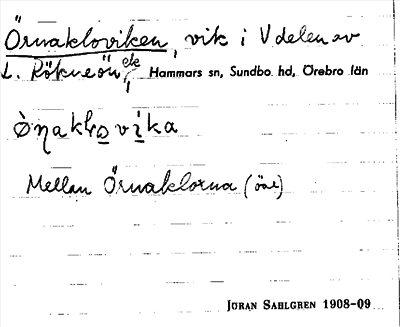 Örnakloviken, vik i V delen av
L. Rökneön, Hammars sn, Sundbo hd, Örebro län
Mellan Örnaklorna (öar)
JÖRAN SAHLGREN 1908-09